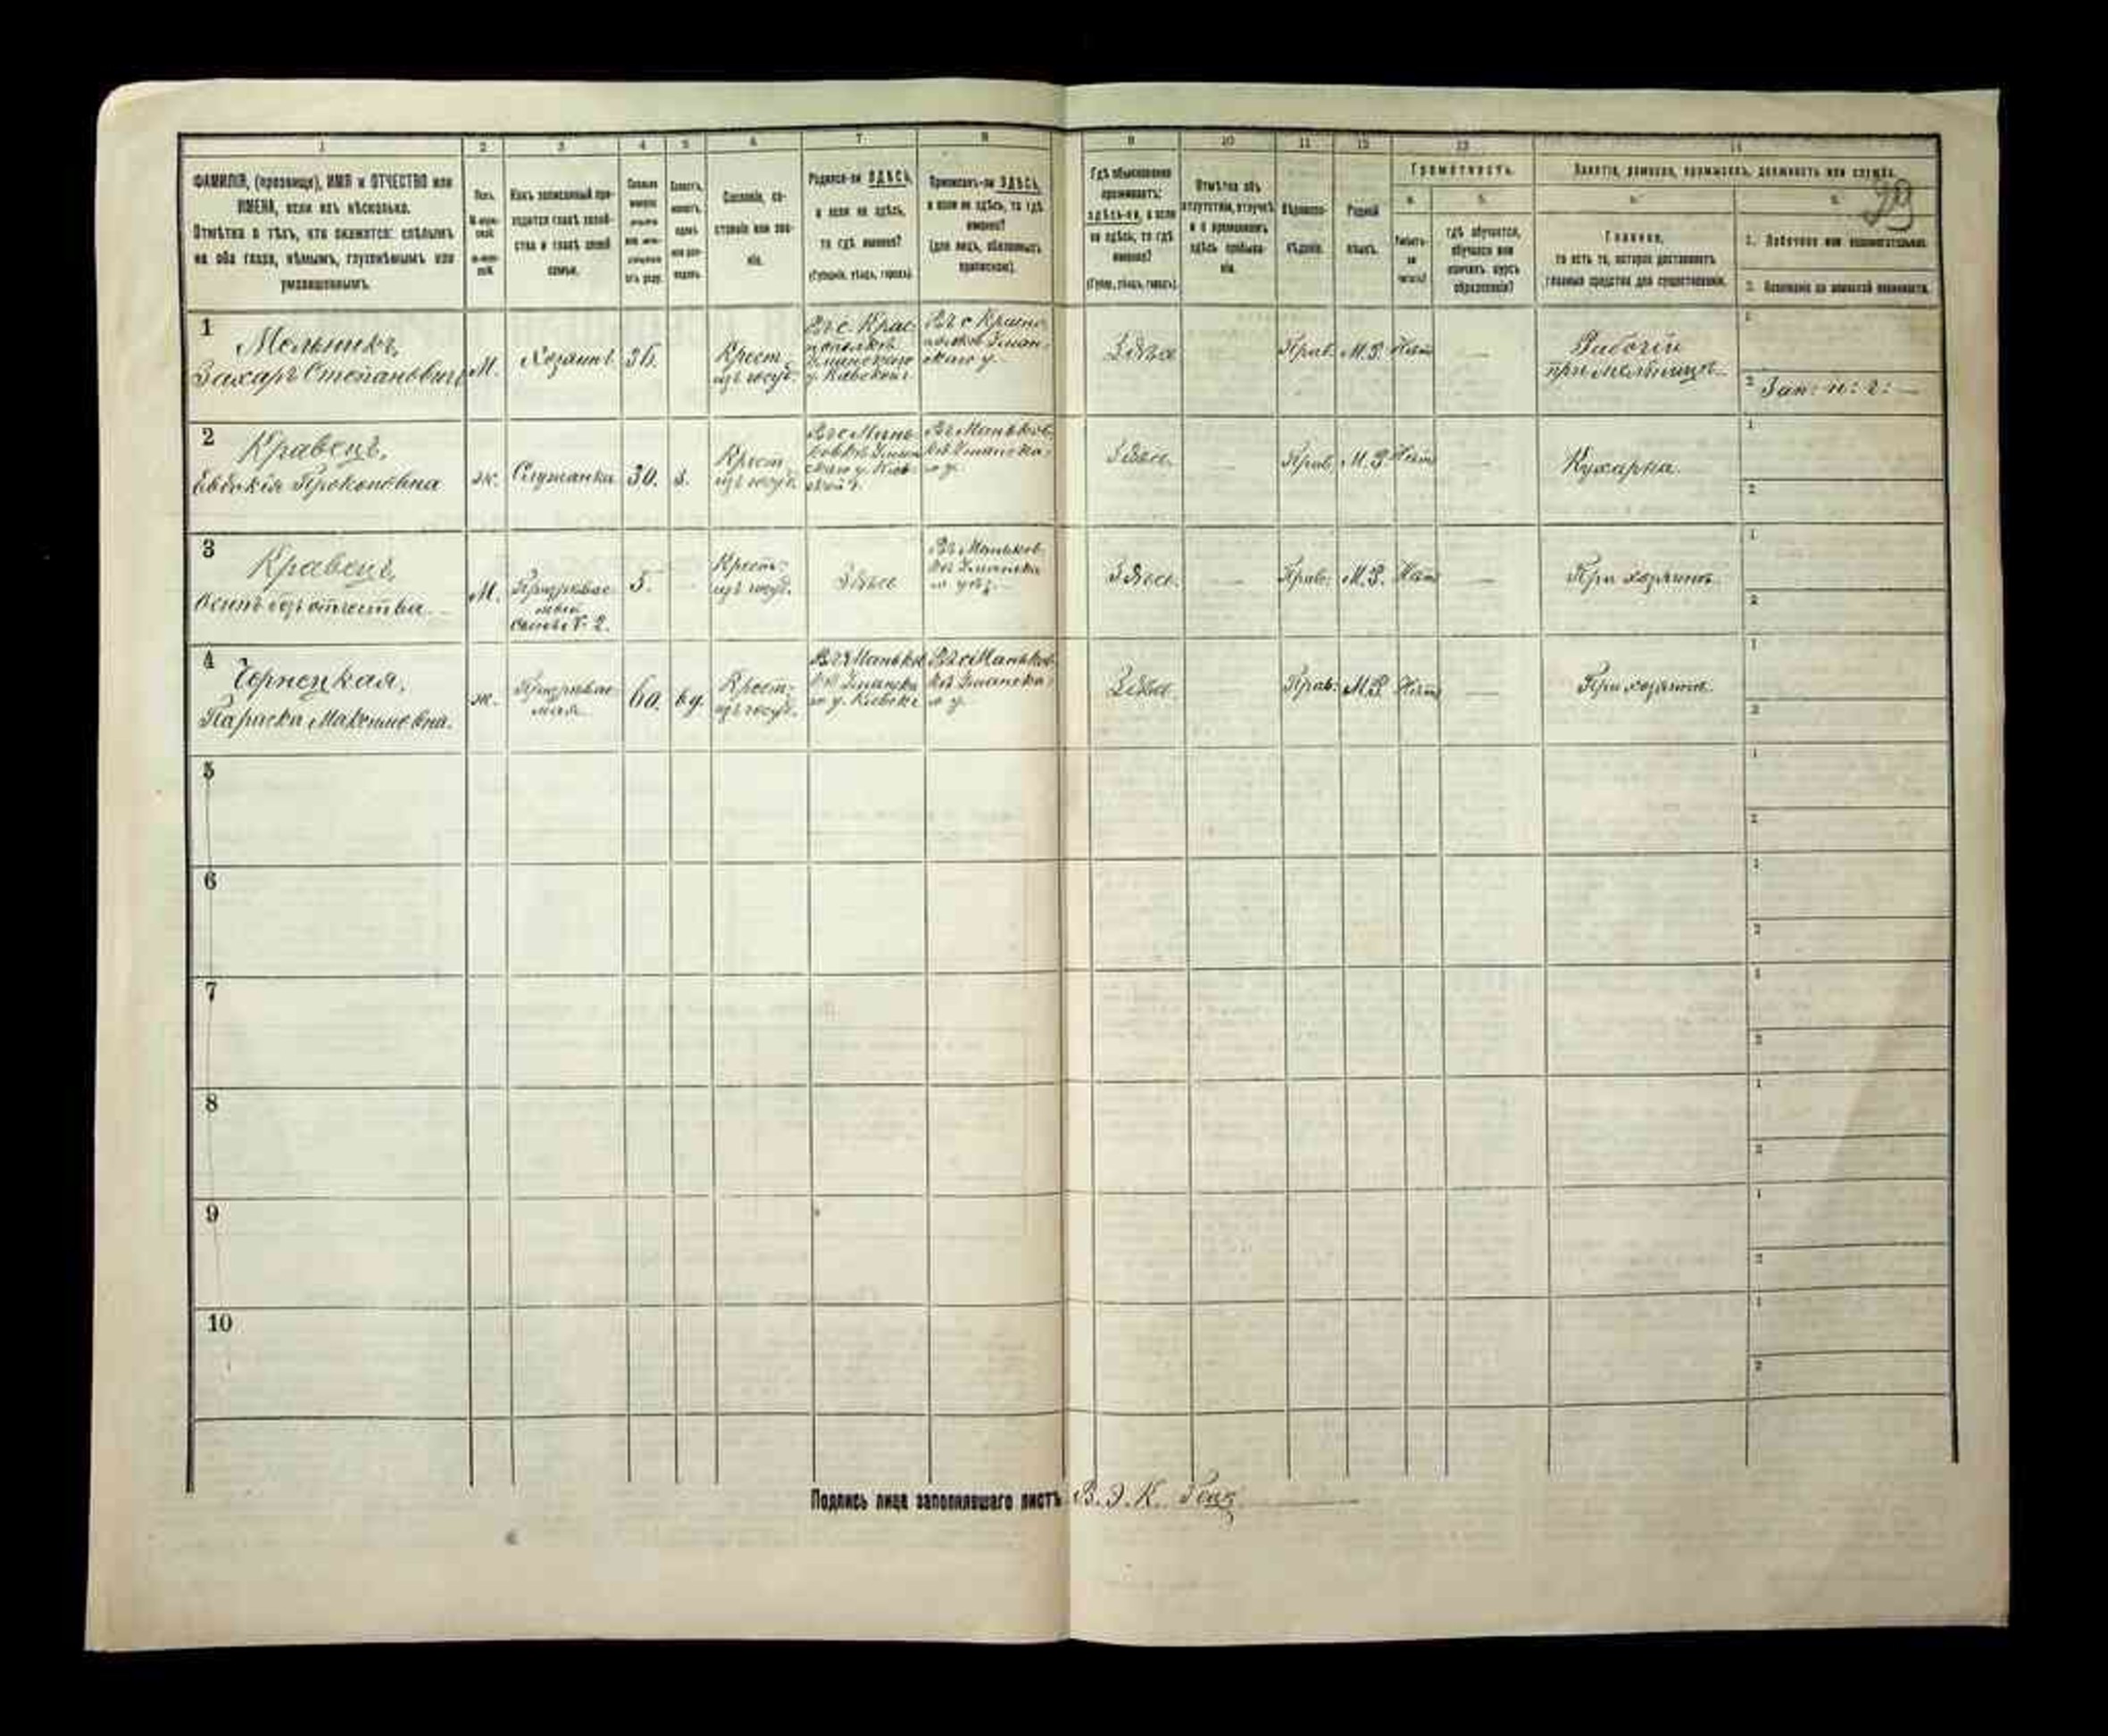 1 2 3 4 5 6 7 8 9 10 11 12 13 14
29
ФАМИЛІЯ, (прозвище), ИМЯ и ОТЧЕСТВО или
ИМЕНА, если ихъ нѣсколько.
Отмѣтка о тѣхъ, кто окажется: слѣпымъ
на оба глаза, нѣмымъ, глухонѣмымъ или
умалишеннымъ.
Полъ.
Какъ записанный при-
ходится главѣ хозяй-
ства и главѣ своей
семьи.
Сословіе, со-
стояніе или зва-
ніе.
Родился-ли ЗДѢСЬ,
а если не здѣсь,
то гдѣ именно?
(Губернія, уѣздъ, городъ).
Приписанъ-ли ЗДѢСЬ,
а если не здѣсь, то гдѣ
именно?
(для лицъ, обязанныхъ
припискою).
Гдѣ обыкновенно
проживаетъ:
здѣсь-ли, а если
не здѣсь, то гдѣ
именно?
(Губер., уѣздъ, городъ).
Отмѣтка объ
отсутствіи, отлучкѣ
и о временномъ
здѣсь пребыва-
ніи.
Вѣроиспо-
вѣданіе.
Родной
языкъ.
Грамотность.
а.
Умѣетъ-
ли
читать?
б.
гдѣ обучается,
обучался или
кончилъ курсъ
образованія?
Занятіе, ремесло, промыселъ, должность или служба.
а.
Главное,
то есть то, которое доставляетъ
главныя средства для существованія.
б.
1. Побочное или вспомогательное.
2. Положеніе по воинской повинности.
1
Мельникъ,
Захаръ Степановичъ
М.
Хозяинъ
36.
Крест.
изъ госуд.
Въ с. Крас-
нополкѣ
Уманского
у. Кіевской г.
Въ с Красно-
полкѣ Уман-
скаго у.
Здѣсь
Прав.
М.Р.
Нѣтъ
—
Рабочій
при мельницѣ
1
2 Зап: н: г: —
2
Кравецъ,
Евдокія Прокоповна
ж.
Служанка
30.
з.
Крест.
изъ госуд.
Въ с Мань-
ковкѣ Уман
скаго у. Кіев-
ской г.
Въ Маньков-
кѣ Уманска-
го у.
Здѣсь.
Прав.
М.Р
Нѣтъ
—
Кухарка.
1
2
3
Кравецъ,
Осипъ безъ отчества
М.
5.
Крест-
изъ госуд.
Здѣсь
Въ Маньков-
кѣ Уманска
го уѣз.
Здѣсь.
Прав:
М.Р.
Нѣтъ
—
При хозяинѣ
1
2
4
Чернецкая,
Параска Максимовна.
ж.
60.
вд.
Крест-
изъ госуд.
Въ с Маньков
кѣ Уманска
го у. Кіевск г
Въ с Маньков-
кѣ Уманска-
го у.
Здѣсь
Прав:
М.Р.
Нѣтъ
—
При хозяинѣ.
1
2
5
1
2
6
1
2
7
1
2
8
1
2
9
1
2
10
1
2
Подпись лица заполнявшаго листъ В. Э. К.